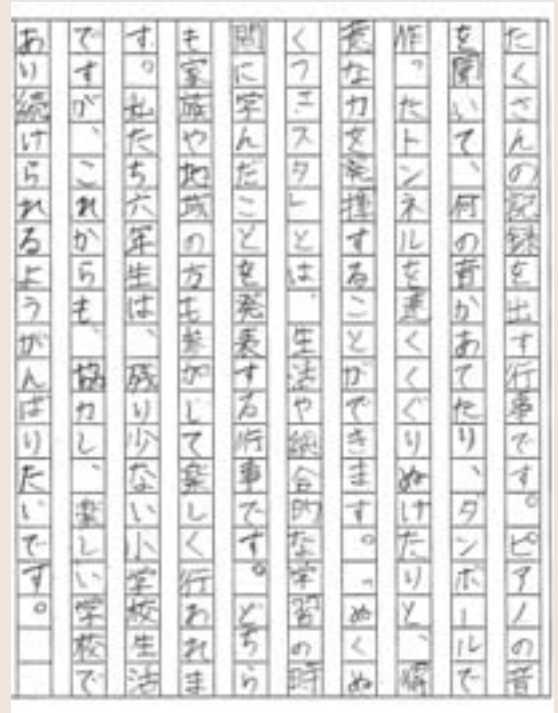 たくさんの記録を出す行事です。ピアノの音
を聞いて、何の音かあてたり、ダンボールで
作ったトンネルを速くくぐりぬけたりと、得
意な力を発揮することができます。「ぬくぬ
くフェスタ」とは、生活や総合的な学習の時
間に学んだことを発表する行事です。どちら
も家族や地域の方も参加して楽しく行われま
す。私たち六年生は、残り少ない小学校生活
ですが、これからも、協力し、楽しい学校で
あり続けられるようがんばりたいです。